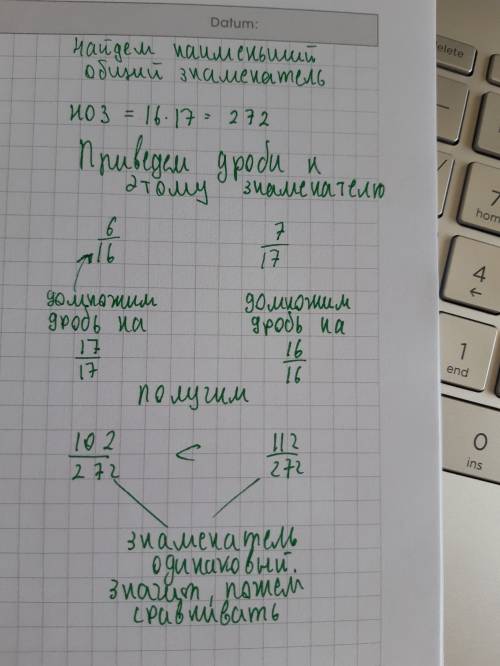 Datum:
найдем наименьший
общий знаменатель
НОЗ = 16·17 = 272
Приведем дроби к
этому знаменателю
6/16 7/17
домножим домножим
дробь на дробь на
17/17 16/16
получим
102/272 < 112/272
знаменатель
одинаковый.
значит, можем
сравнивать
delete
7
home
4
←
1
end
0
ins